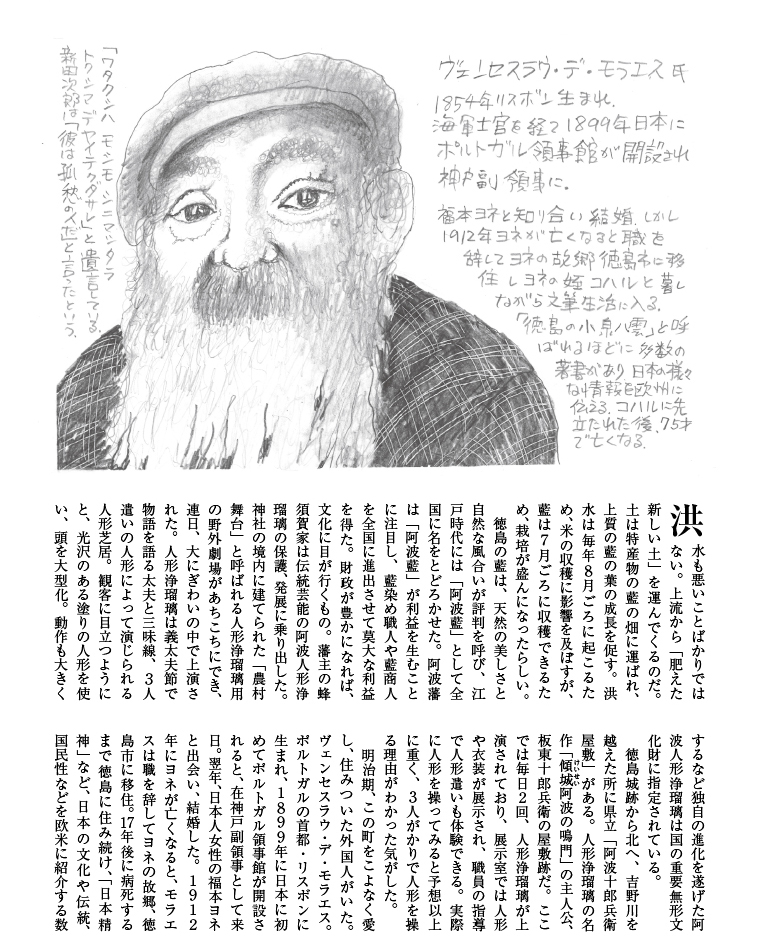 ヴェンセスラウ・デ・モラエス氏
1854年リスボン生まれ。
海軍士官を経て1899年日本に
ポルトガル領事館が開設され
神戸副領事に。
福本ヨネと知り合い結婚。しかし
1912年ヨネが亡くなると職を
辞してヨネの故郷徳島市に移
住しヨネの姪コハルと暮し
ながら文筆生活に入る。
「徳島の小泉八雲」と呼
ばれるほどに多数の
著書があり日本の様々
な情報を欧州に
伝える。コハルに先
立たれた後、75才
で亡くなる。
「ワタクシハ モシモ シニマシタラ
トクシマデ ヤイテクダサレ」と遺言している。
新田次郎は「彼は孤愁の人だ」と言ったという。
洪水も悪いことばかりでは
ない。上流から「肥えた
新しい土」を運んでくるのだ。
土は特産物の藍の畑に運ばれ、
上質の藍の葉の成長を促す。洪
水は毎年8月ごろに起こるた
め、米の収穫に影響を及ぼすが、
藍は7月ごろに収穫できるた
め、栽培が盛んになったらしい。
徳島の藍は、天然の美しさと
自然な風合いが評判を呼び、江
戸時代には「阿波藍」として全
国に名をとどろかせた。阿波藩
は「阿波藍」が利益を生むこと
に注目し、藍染め職人や藍商人
を全国に進出させて莫大な利益
を得た。財政が豊かになれば、
文化に目が行くもの。藩主の蜂
須賀家は伝統芸能の阿波人形浄
瑠璃の保護、発展に乗り出した。
神社の境内に建てられた「農村
舞台」と呼ばれる人形浄瑠璃用
の野外劇場があちこちにでき、
連日、大にぎわいの中で上演さ
れた。人形浄瑠璃は義太夫節で
物語を語る太夫と三味線、3人
遣いの人形によって演じられる
人形芝居。観客に目立つように
と、光沢のある塗りの人形を使
い、頭を大型化。動作も大きく
するなど独自の進化を遂げた阿
波人形浄瑠璃は国の重要無形文
化財に指定されている。
徳島城跡から北へ、吉野川を
越えた所に県立「阿波十郎兵衛
屋敷」がある。人形浄瑠璃の名
作「傾城阿波の鳴門」の主人公、
けいせい
板東十郎兵衛の屋敷跡だ。ここ
では毎日2回、人形浄瑠璃が上
演されており、展示室では人形
や衣装が展示され、職員の指導
で人形遣いも体験できる。実際
に人形を操ってみると予想以上
に重く、3人がかりで人形を操
る理由がわかった気がした。
明治期、この町をこよなく愛
し、住みついた外国人がいた。
ヴェンセスラウ・デ・モラエス。
ポルトガルの首都・リスボンに
生まれ、1899年に日本に初
めてポルトガル領事館が開設さ
れると、在神戸副領事として来
日。翌年、日本人女性の福本ヨネ
と出会い、結婚した。1912
年にヨネが亡くなると、モラエ
スは職を辞してヨネの故郷、徳
島市に移住。17年後に病死する
まで徳島に住み続け、「日本精
神」など、日本の文化や伝統、
国民性などを欧米に紹介する数